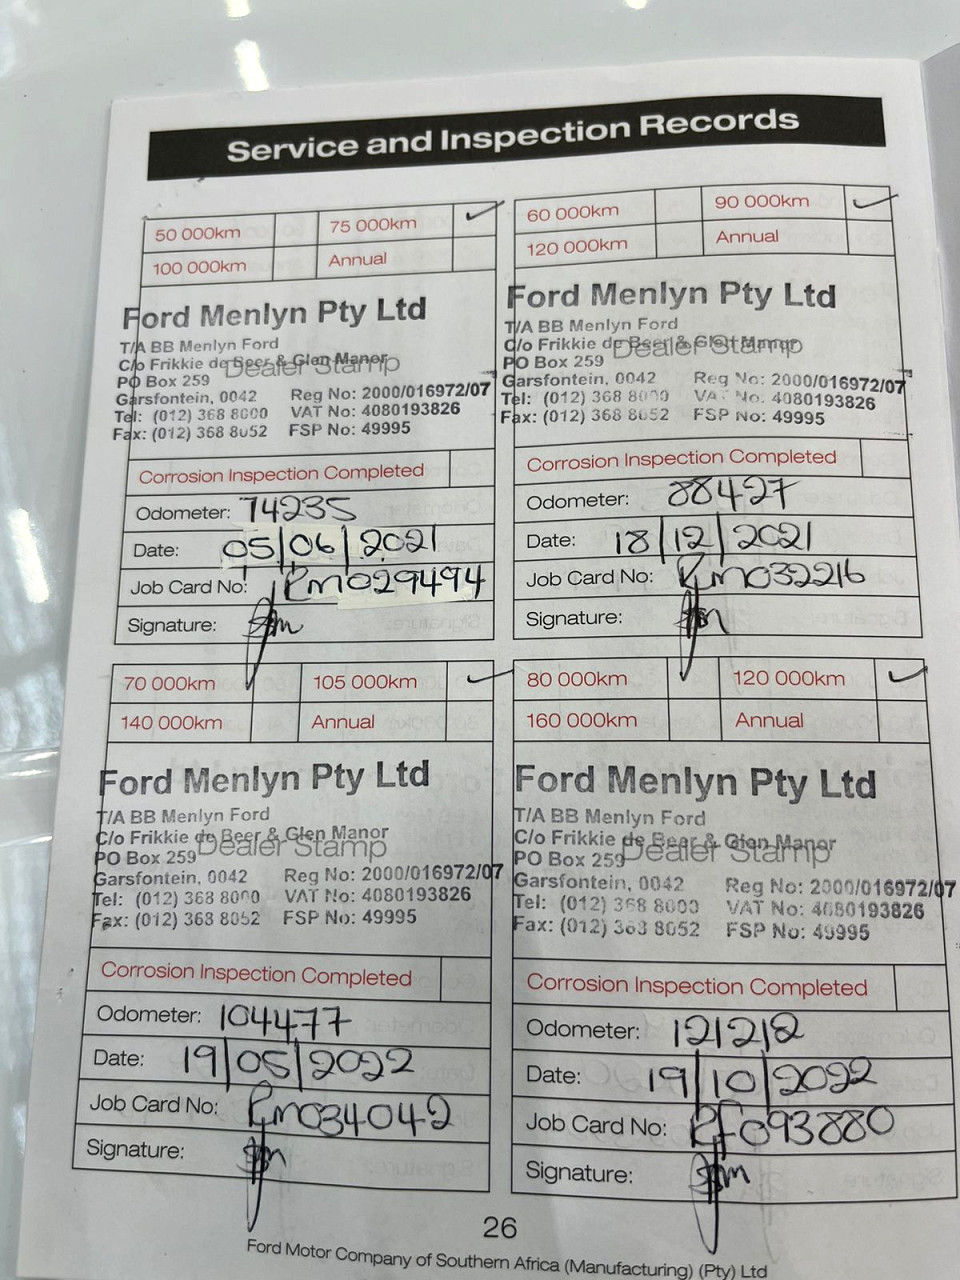 Service and Inspection Records
50 000km 75 000km ✓
100 000km Annual
Ford Menlyn Pty Ltd
T/A BB Menlyn Ford
C/o Frikkie de Beer & Glen Manor
Dealer Stamp
PO Box 259
Garsfontein, 0042 Reg No: 2000/016972/07
Tel: (012) 368 8000 VAT No: 4080193826
Fax: (012) 368 8052 FSP No: 49995
Corrosion Inspection Completed
Odometer: 74235
Date: 05/06/2021
Job Card No: RM029494
Signature:
60 000km 90 000km ✓
120 000km Annual
Ford Menlyn Pty Ltd
T/A BB Menlyn Ford
C/o Frikkie de Beer & Glen Manor
Dealer Stamp
PO Box 259
Garsfontein, 0042 Reg No: 2000/016972/07
Tel: (012) 368 8000 VAT No: 4080193826
Fax: (012) 368 8052 FSP No: 49995
Corrosion Inspection Completed
Odometer: 88427
Date: 18/12/2021
Job Card No: RM032216
Signature:
70 000km 105 000km ✓
140 000km Annual
Ford Menlyn Pty Ltd
T/A BB Menlyn Ford
C/o Frikkie de Beer & Glen Manor
Dealer Stamp
PO Box 259
Garsfontein, 0042 Reg No: 2000/016972/07
Tel: (012) 368 8000 VAT No: 4080193826
Fax: (012) 368 8052 FSP No: 49995
Corrosion Inspection Completed
Odometer: 104477
Date: 19/05/2022
Job Card No: RM034042
Signature:
80 000km 120 000km ✓
160 000km Annual
Ford Menlyn Pty Ltd
T/A BB Menlyn Ford
C/o Frikkie de Beer & Glen Manor
Dealer Stamp
PO Box 259
Garsfontein, 0042 Reg No: 2000/016972/07
Tel: (012) 368 8000 VAT No: 4080193826
Fax: (012) 368 8052 FSP No: 49995
Corrosion Inspection Completed
Odometer: 121212
Date: 19/10/2022
Job Card No: RF093880
Signature:
26
Ford Motor Company of Southern Africa (Manufacturing) (Pty) Ltd